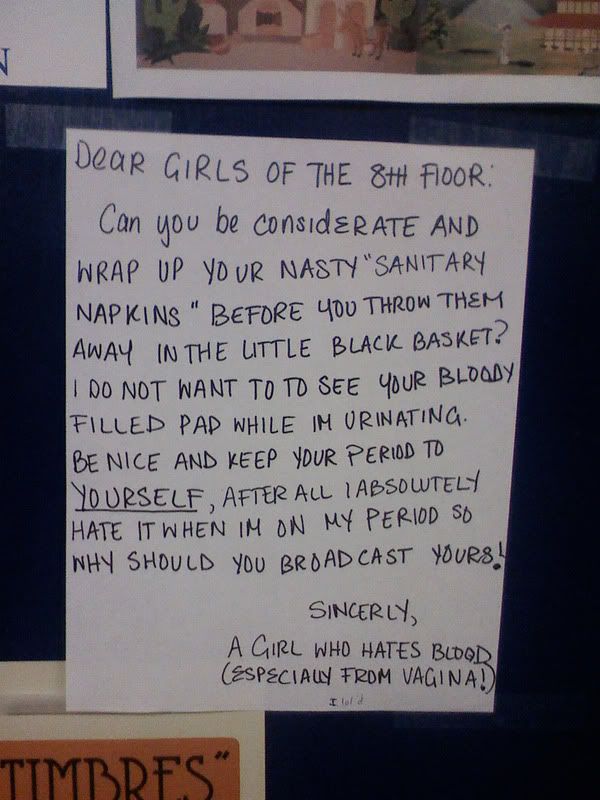 N
DEAR GIRLS OF THE 8TH FLOOR:
Can you be considERATE AND
WRAP UP YOUR NASTY "SANITARY
NAPKINS" BEFORE YOU THROW THEM
AWAY IN THE LITTLE BLACK BASKET?
I DO NOT WANT TO TO SEE YOUR BLOODY
FILLED PAD WHILE IM URINATING.
BE NICE AND KEEP YOUR PERIOD TO
YOURSELF, AFTER ALL I ABSOLUTELY
HATE IT WHEN IM ON MY PERIOD SO
WHY SHOULD YOU BROADCAST YOURS!
SINCERLY,
A GIRL WHO HATES BLOOD
(ESPECIALLY FROM VAGINA!)
I lol'd
TIMBRES"